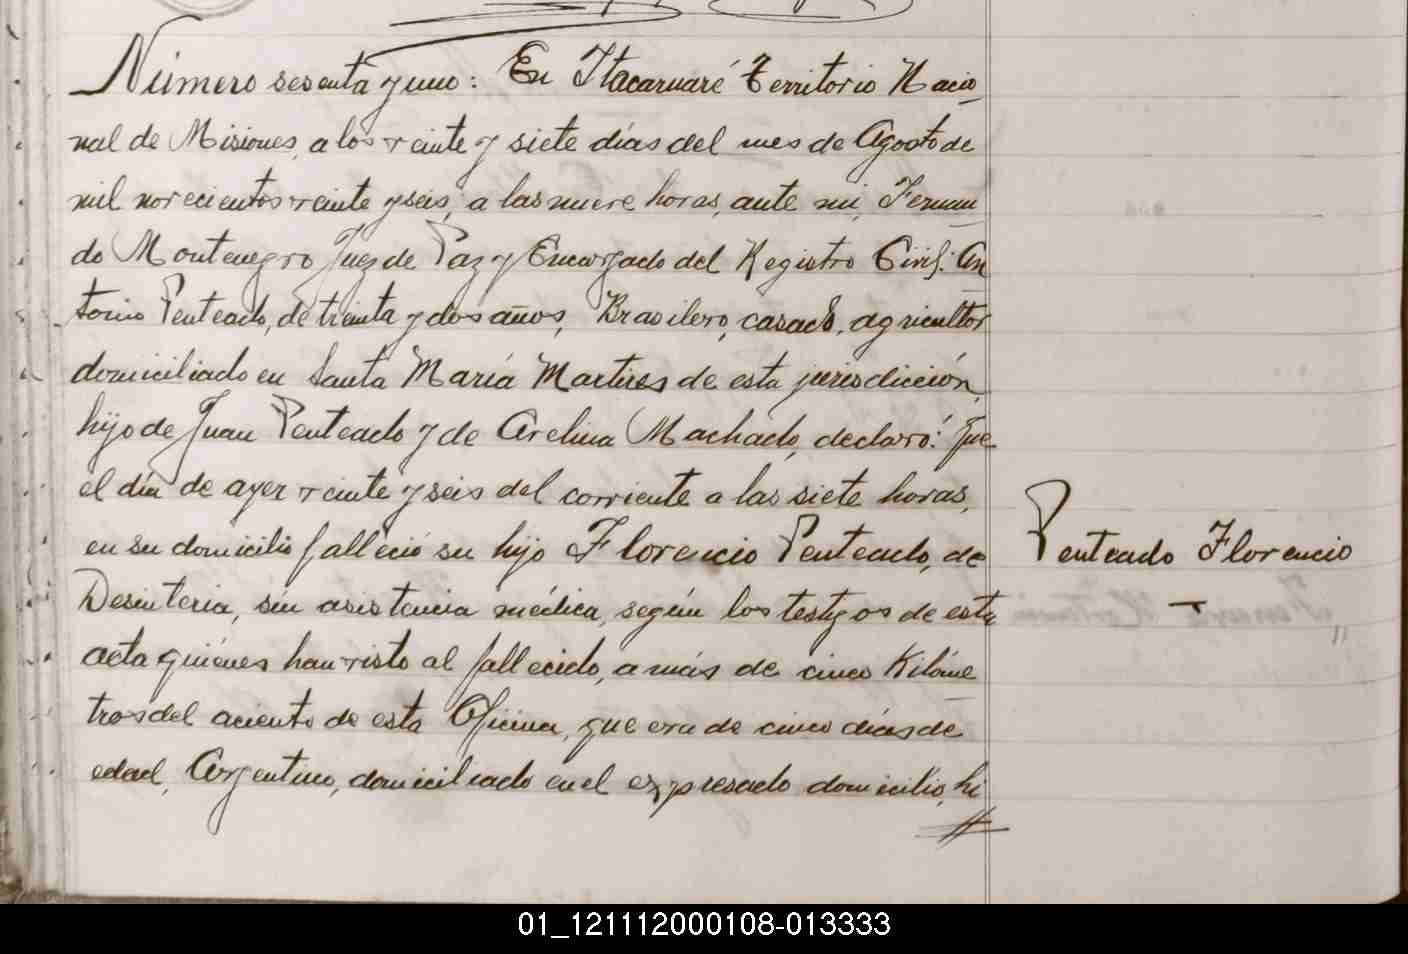 Número sesenta y uno: En Itacaruaré Territorio Nacio
nal de Misiones, a los veinte y siete días del mes de Agosto de
mil novecientos veinte y seis, a las nueve horas, ante mi, Fernan
do Montenegro Juez de Paz y Encargado del Registro Civil: An
tonio Penteado, de treinta y dos años, Brasilero, casado, agricultor
domiciliado en Santa María Martires de esta jurisdicción,
hijo de Juan Penteado y de Avelina Machado, declaró: Que
el día de ayer veinte y seis del corriente a las siete horas,
en su domicilio falleció su hijo Florencio Penteado, de
Desinteria, sin asistencia médica, según los testigos de esta
acta quiénes han visto al fallecido, a más de cinco Kilóme
tros del aciento de esta Oficina, que era de cinco días de
edad, Argentino, domiciliado en el expresado domicilio, hi
Penteado Florencio
01_121112000108-013333